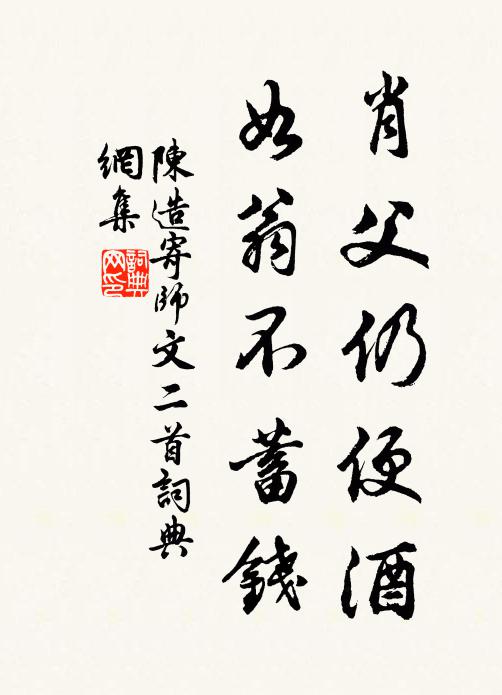 肖父仍便酒
如翁不蓄錢
陳造寄師文二首詞典
網集
詞典
网印